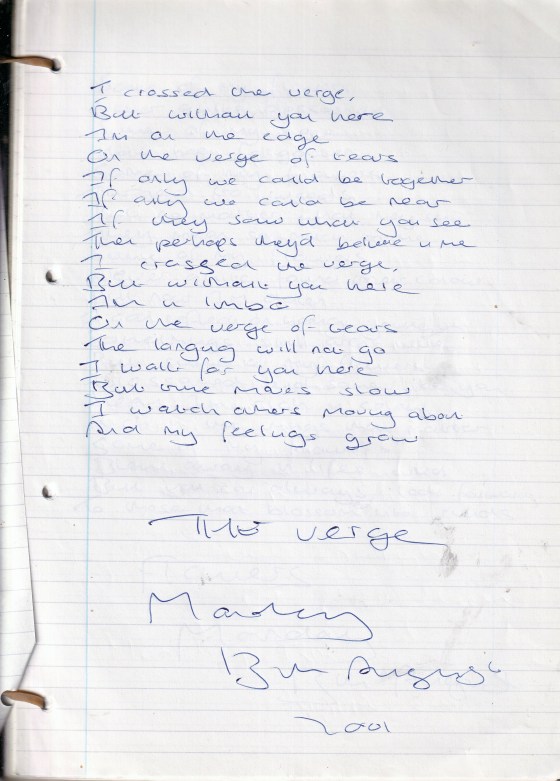 I crossed the verge,
But without you here
Im on the edge
On the verge of tears
If only we could be together
If only we could be near
If they saw what you see
Then perhaps they'd believe in me
I crossed the verge,
But without you here
Im in limbo
On the verge of tears
The longing will not go
I wait for you here
But time moves slow
I watch others moving about
And my feelings grow
The verge
Monday
13th August
2001